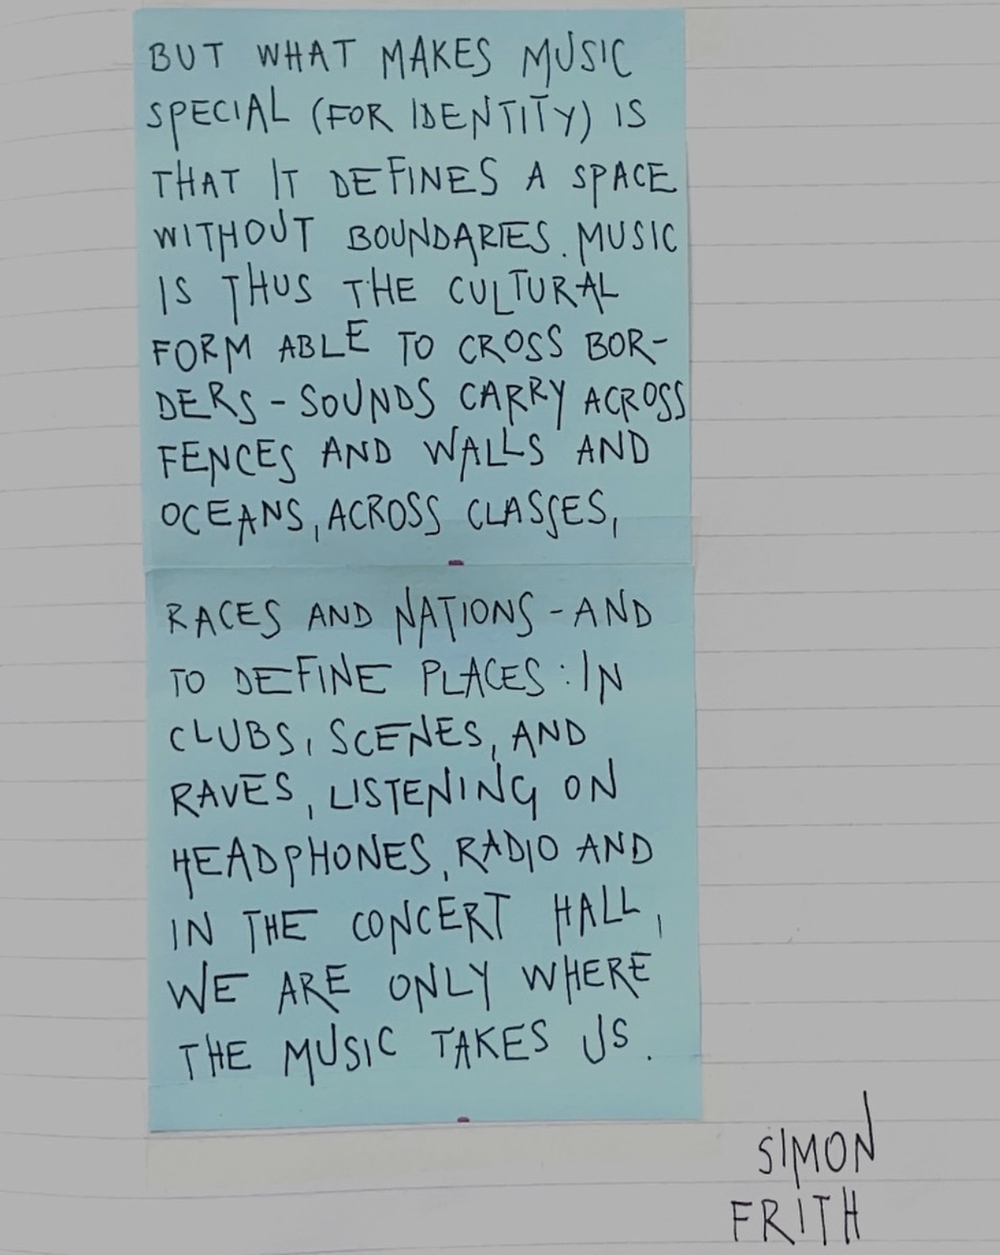 BUT WHAT MAKES MUSIC
SPECIAL (FOR IDENTITY) IS
THAT IT DEFINES A SPACE
WITHOUT BOUNDARIES. MUSIC
IS THUS THE CULTURAL
FORM ABLE TO CROSS BOR-
DERS - SOUNDS CARRY ACROSS
FENCES AND WALLS AND
OCEANS, ACROSS CLASSES,
RACES AND NATIONS - AND
TO DEFINE PLACES : IN
CLUBS, SCENES, AND
RAVES, LISTENING ON
HEADPHONES, RADIO AND
IN THE CONCERT HALL,
WE ARE ONLY WHERE
THE MUSIC TAKES US.
SIMON
FRITH